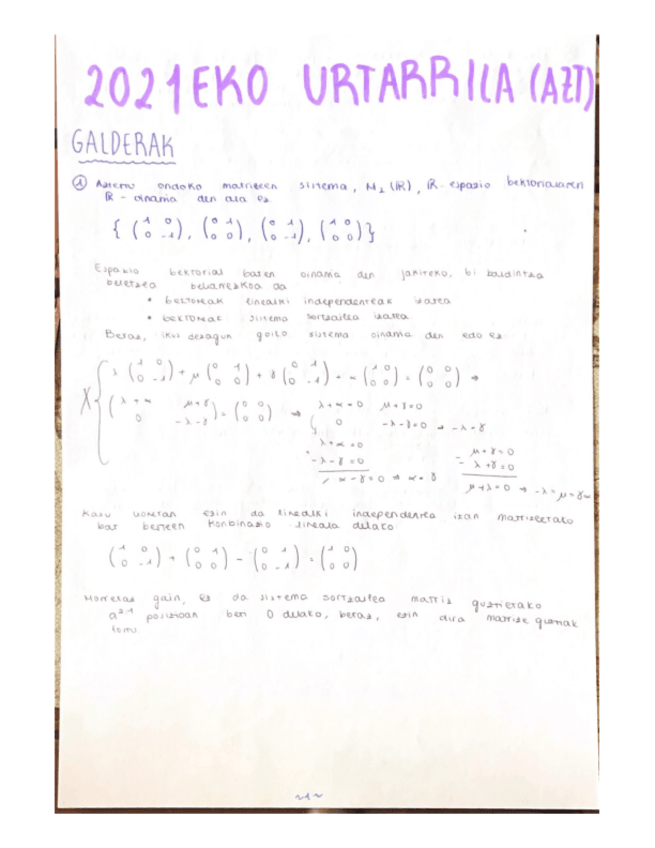 2021EKO URTARRILA (AZT)
GALDERAK
① Aztertu ondoko matrizeen sistema, M₂(ℝ), ℝ-espazio bektorialaren
ℝ-oinarria den ala ez.
{ (1 0; 0 -1), (0 1; 0 0), (0 1; 0 -1), (1 0; 0 0) }
Espazio bektorial baten oinarria den jakiteko, bi baldintza
betetzea beharrezkoa da
• bektoreak linealki independenteak izatea
• bektoreak sistema sortzailea izatea.
Beraz, ikus dezagun goiko sistema oinarria den edo ez
X { λ (1 0; 0 -1) + μ (0 1; 0 0) + γ (0 1; 0 -1) + α (1 0; 0 0) = (0 0; 0 0) →
(λ+α μ+γ; 0 -λ-γ) = (0 0; 0 0) → λ+α=0 μ+γ=0
0 -λ-γ=0 → -λ=γ
λ+α=0
-λ-γ=0
α-γ=0 → α=γ
μ+γ=0
- λ+γ=0
μ+λ=0 → -λ=μ=γ=α
Kasu honetan ezin da linealki independentea izan matrizeetako
bat besteen konbinazio lineala delako
(1 0; 0 -1) + (0 1; 0 0) - (0 1; 0 -1) = (1 0; 0 0)
Horretaz gain, ez da sistema sortzailea matriz guztietako
a²¹ posizioan 0 delako, beraz, ezin dira matrize guztiak
lortu
~1~